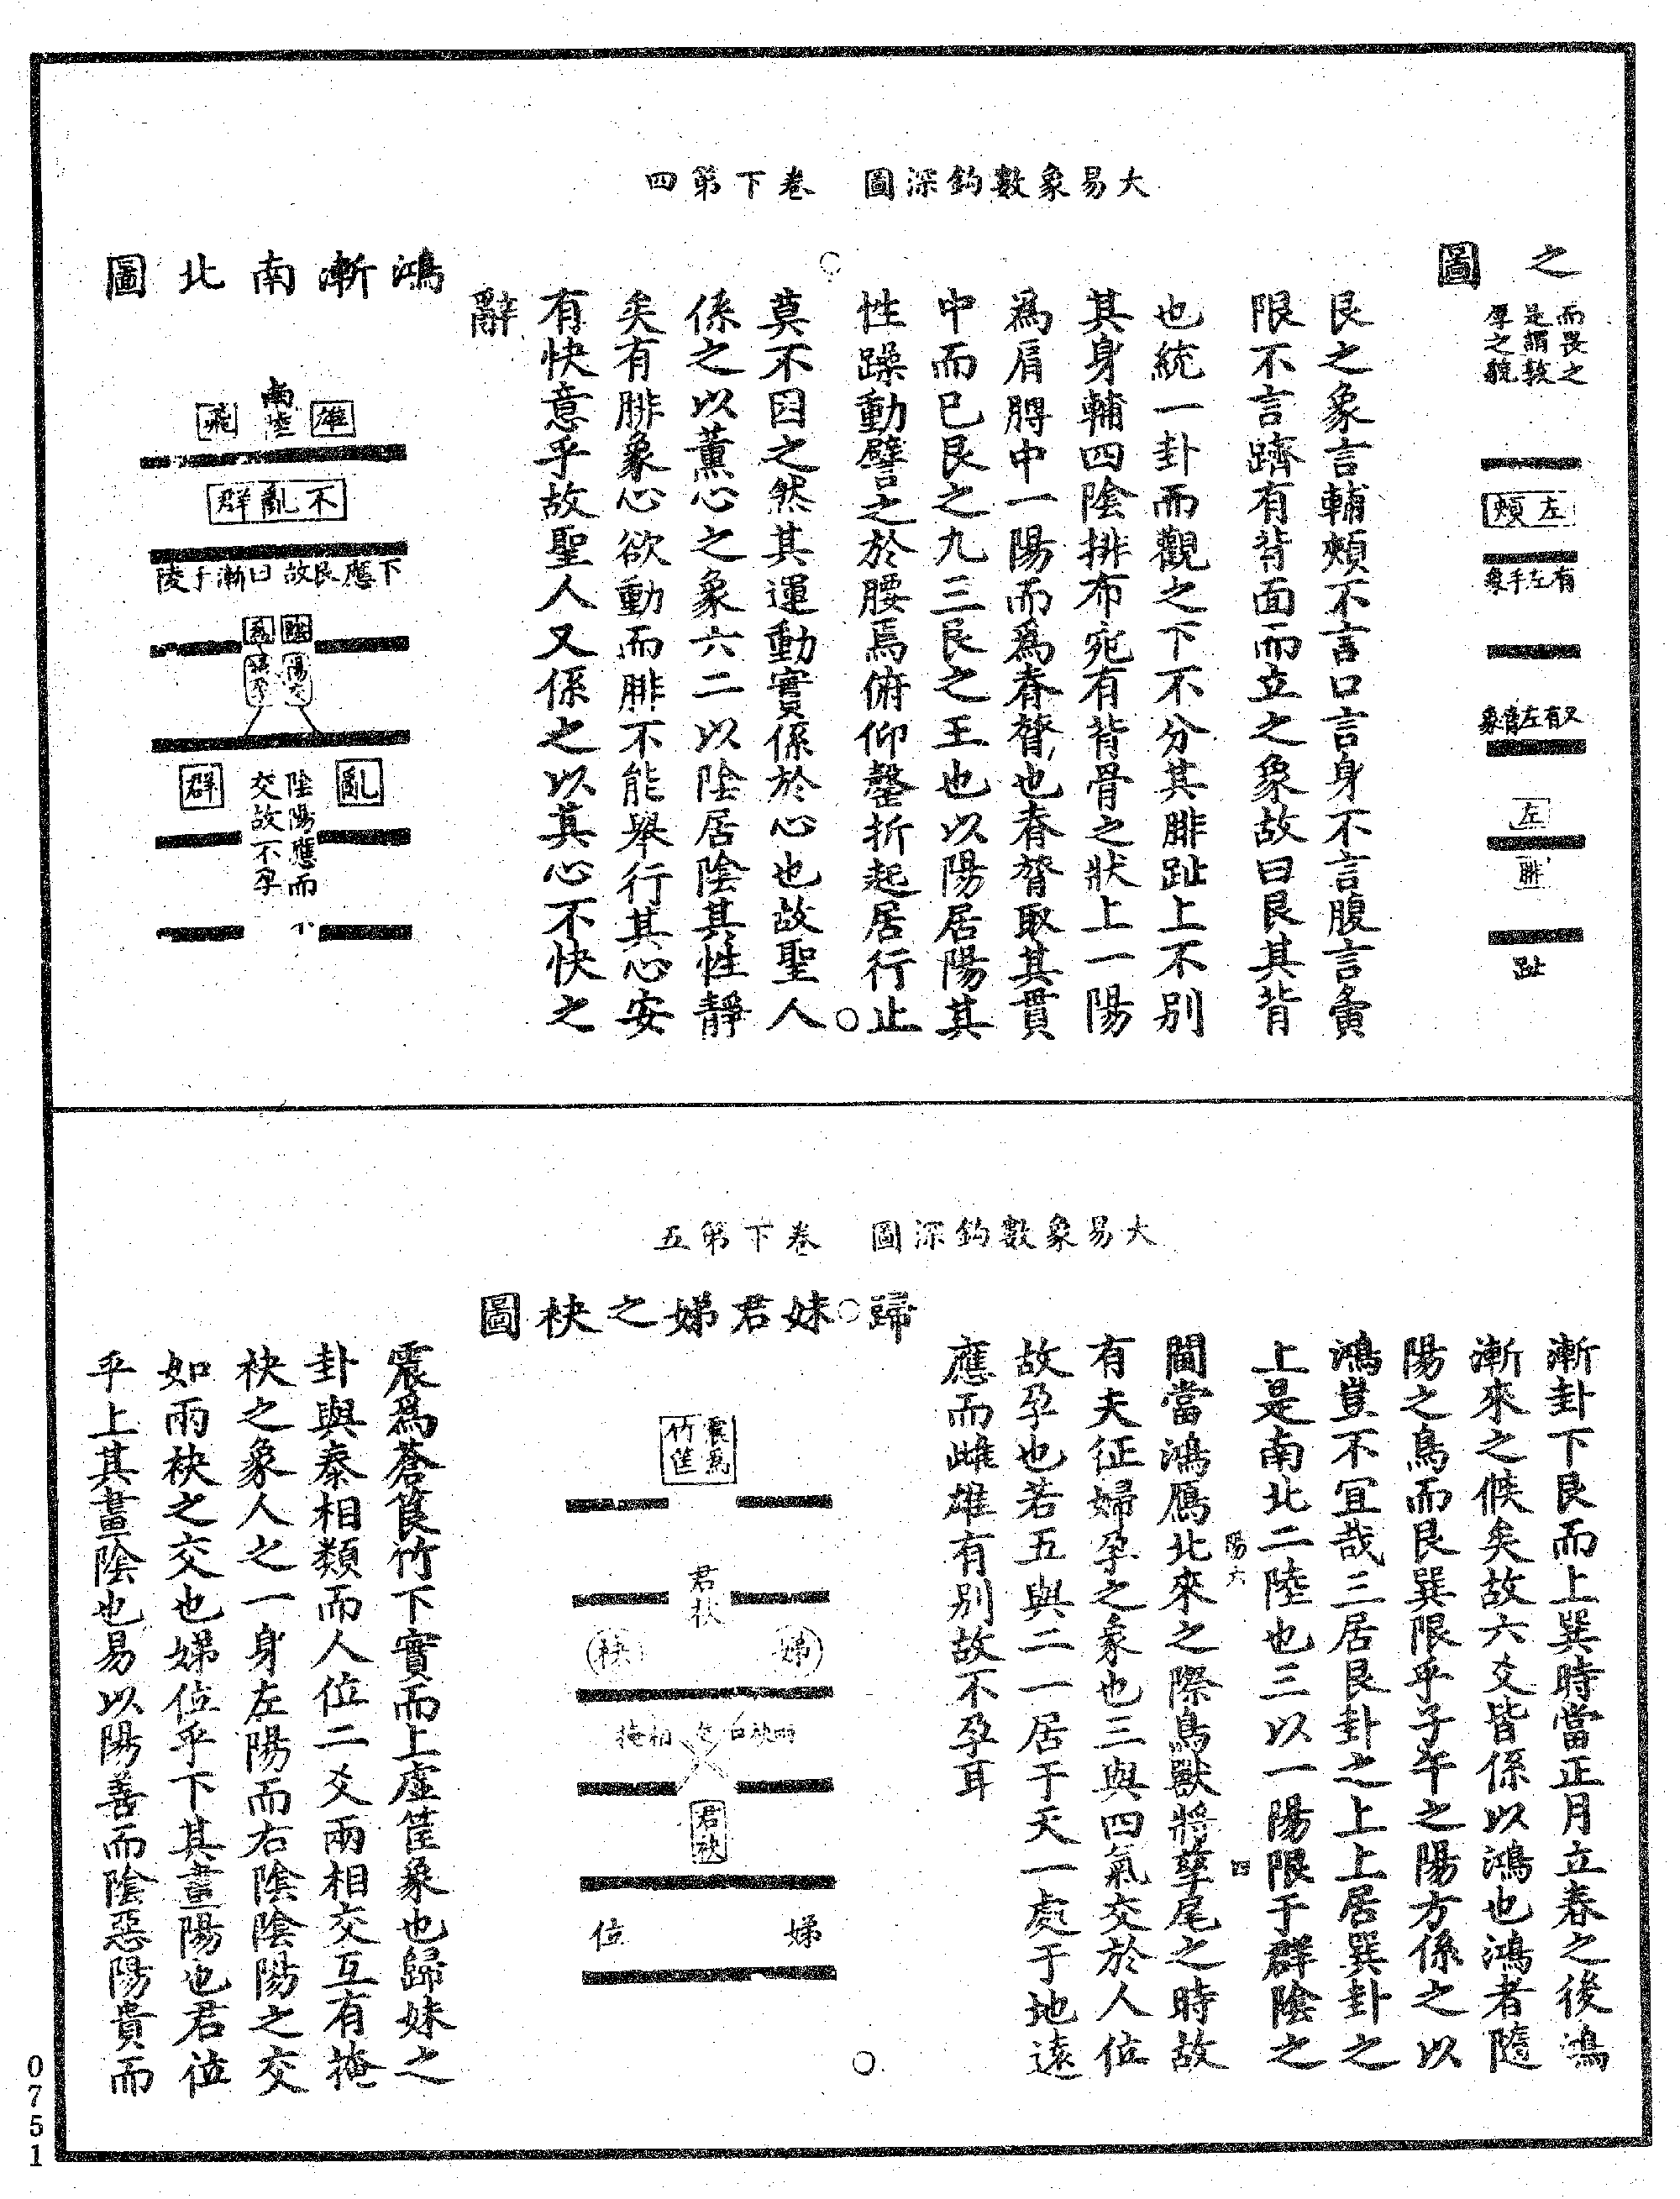 大易象數鈎深圖　卷下第四
之
圖
而畏之
是謂敦
厚之貌
左頰
有左手象
又有左脅象
左
腓
趾
艮之象言輔頰不言口言身不言腹言夤
限不言躋有背面而立之象故曰艮其背
也統一卦而觀之下不分其腓趾上不別
其身輔四陰排布宛有背骨之狀上一陽
爲肩膊中一陽而爲脊膂也脊膂取其貫
中而已艮之九三艮之王也以陽居陽其
性躁動譬之於腰焉俯仰罄折起居行止
莫不因之然其運動實係於心也故聖人
係之以薰心之象六二以陰居陰其性靜
矣有腓象心欲動而腓不能舉行其心安
有快意乎故聖人又係之以其心不快之
辭
鴻漸南北圖
南陸
雄
飛
不亂群
下應艮故曰漸于陵
亂
群
陰陽應而
交故不孕
大易象數鈎深圖　卷下第五
漸卦下艮而上巽時當正月立春之後鴻
漸來之候矣故六爻皆係以鴻也鴻者隨
陽之鳥而艮巽限乎子午之陽方係之以
鴻豈不宜哉三居艮卦之上上居巽卦之
上是南北二陸也三以一陽限于群陰之
陽六
四
間當鴻鴈北來之際鳥獸將孳尾之時故
有夫征婦孕之象也三與四氣交於人位
故孕也若五與二一居于天一處于地遠
應而雌雄有別故不孕耳
歸妹君娣之袂圖
震爲
竹筐
君袂
娣
袂
兩袂口交相掩
君袂
娣
位
震爲蒼筤竹下實而上虛筐象也歸妹之
卦與泰相類而人位二爻兩相交互有掩
袂之象人之一身左陽而右陰陰陽之交
如兩袂之交也娣位乎下其畫陽也君位
乎上其畫陰也易以陽善而陰惡陽貴而
0751